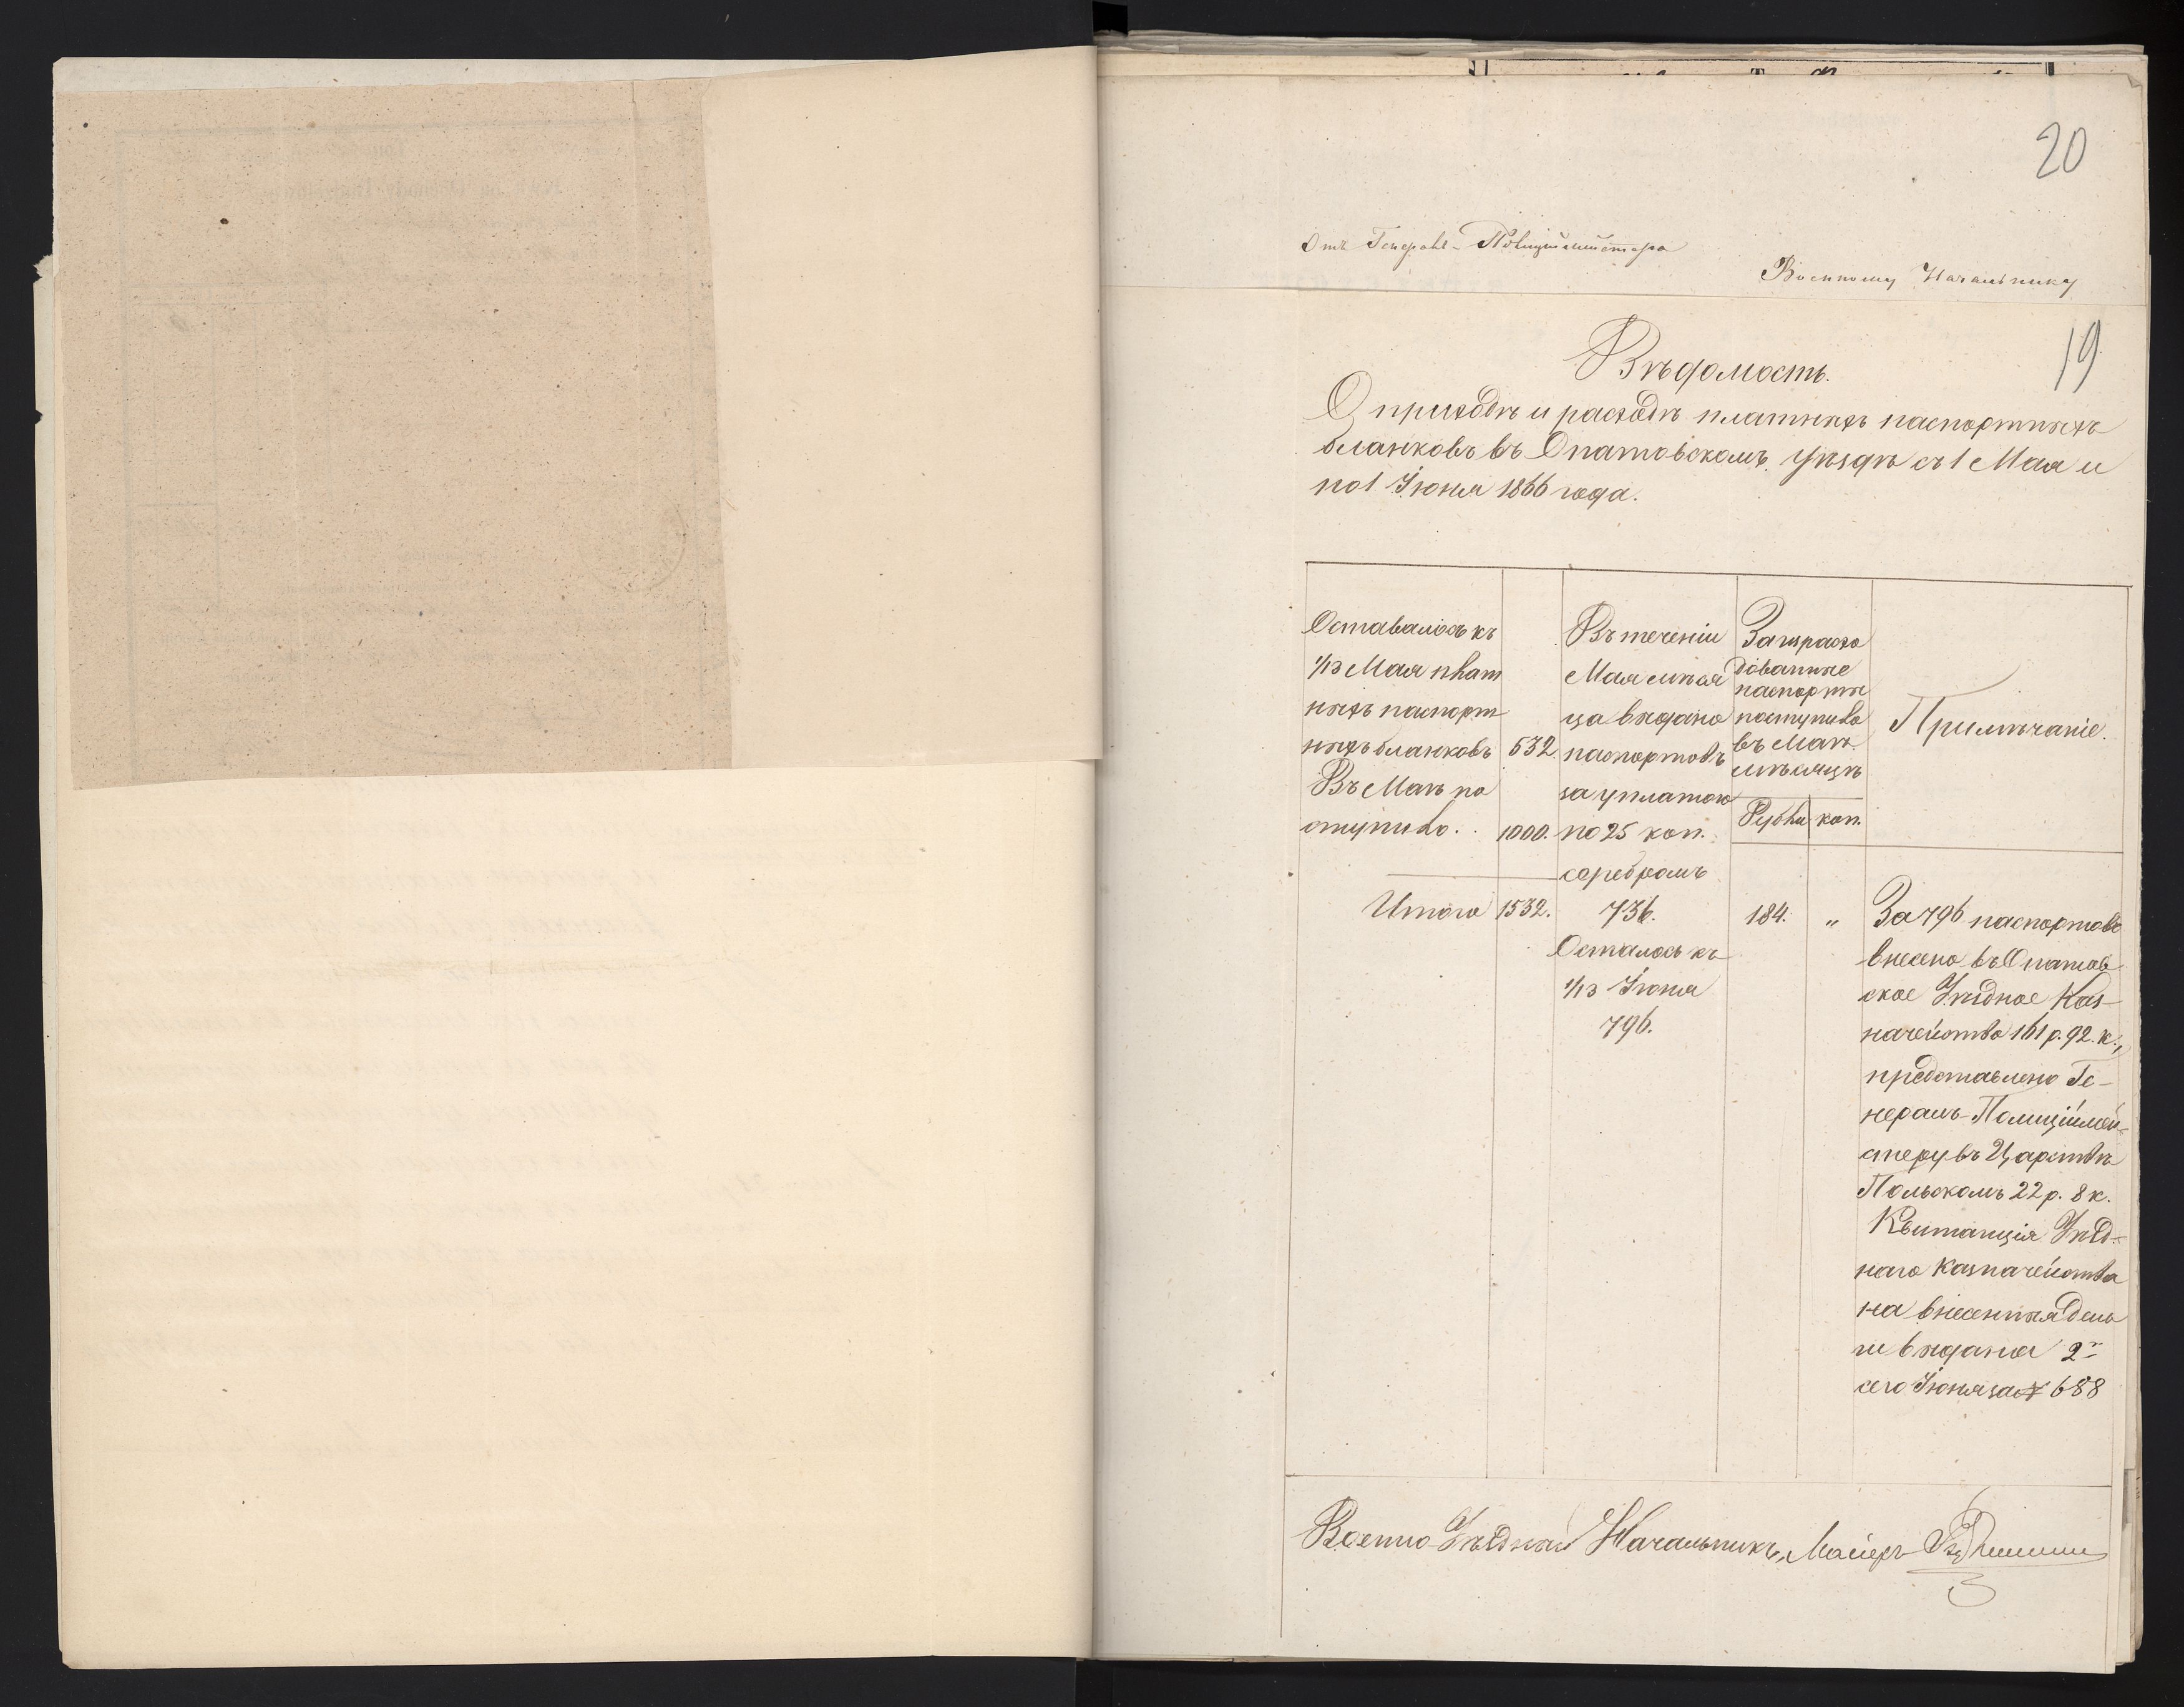 20
Отъ Генералъ-Полиціймейстера
Военному Начальнику
19
Вѣдомость.
О приходѣ и расходѣ платныхъ паспортныхъ
бланковъ въ Опатовскомъ уѣздѣ съ 1 Мая и
по 1 Іюня 1866 года.
Оставалось къ
1/13 Мая плат
ныхъ паспорт
ныхъ бланковъ 532.
Въ Маѣ по
ступило. . 1000.
Итого 1532.
Въ теченіи
Мая мѣся
ца выдано
паспортовъ
за уплатою
по 25 коп.
серебромъ
736.
Осталось къ
1/13 Іюня
796.
За израсхо
дованные
паспорты
поступило
въ Маѣ
мѣсяцѣ
Рубли коп.
184. „
Примѣчаніе.
За 796 паспортовъ
внесено въ Опатов
ское Уѣздное Каз-
начейство 161 р. 92. к.,
представлено Ге-
нералъ-Полиціймей-
стеру въ Царствѣ
Польскомъ 22 р. 8 к.
Квитанція Уѣзд-
наго Казначейства
на внесенныя день
ги выдана 2г
сего Іюня за № 688
Военно-Уѣздный Начальникъ, Маіоръ